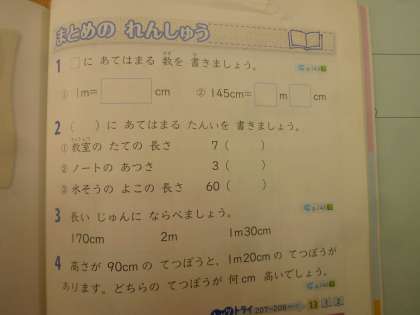 まとめの れんしゅう
1 □に あてはまる 数を 書きましょう。
① 1m= cm ② 145cm= m cm
2 ( )に あてはまる たんいを 書きましょう。
① 教室の たての 長さ 7( )
② ノートの あつさ 3( )
③ 水そうの よこの 長さ 60( )
3 長い じゅんに ならべましょう。
170cm 2m 1m30cm
4 高さが 90cmの てつぼうと、1m20cmの てつぼうが
あります。どちらの てつぼうが 何cm 高いでしょう。